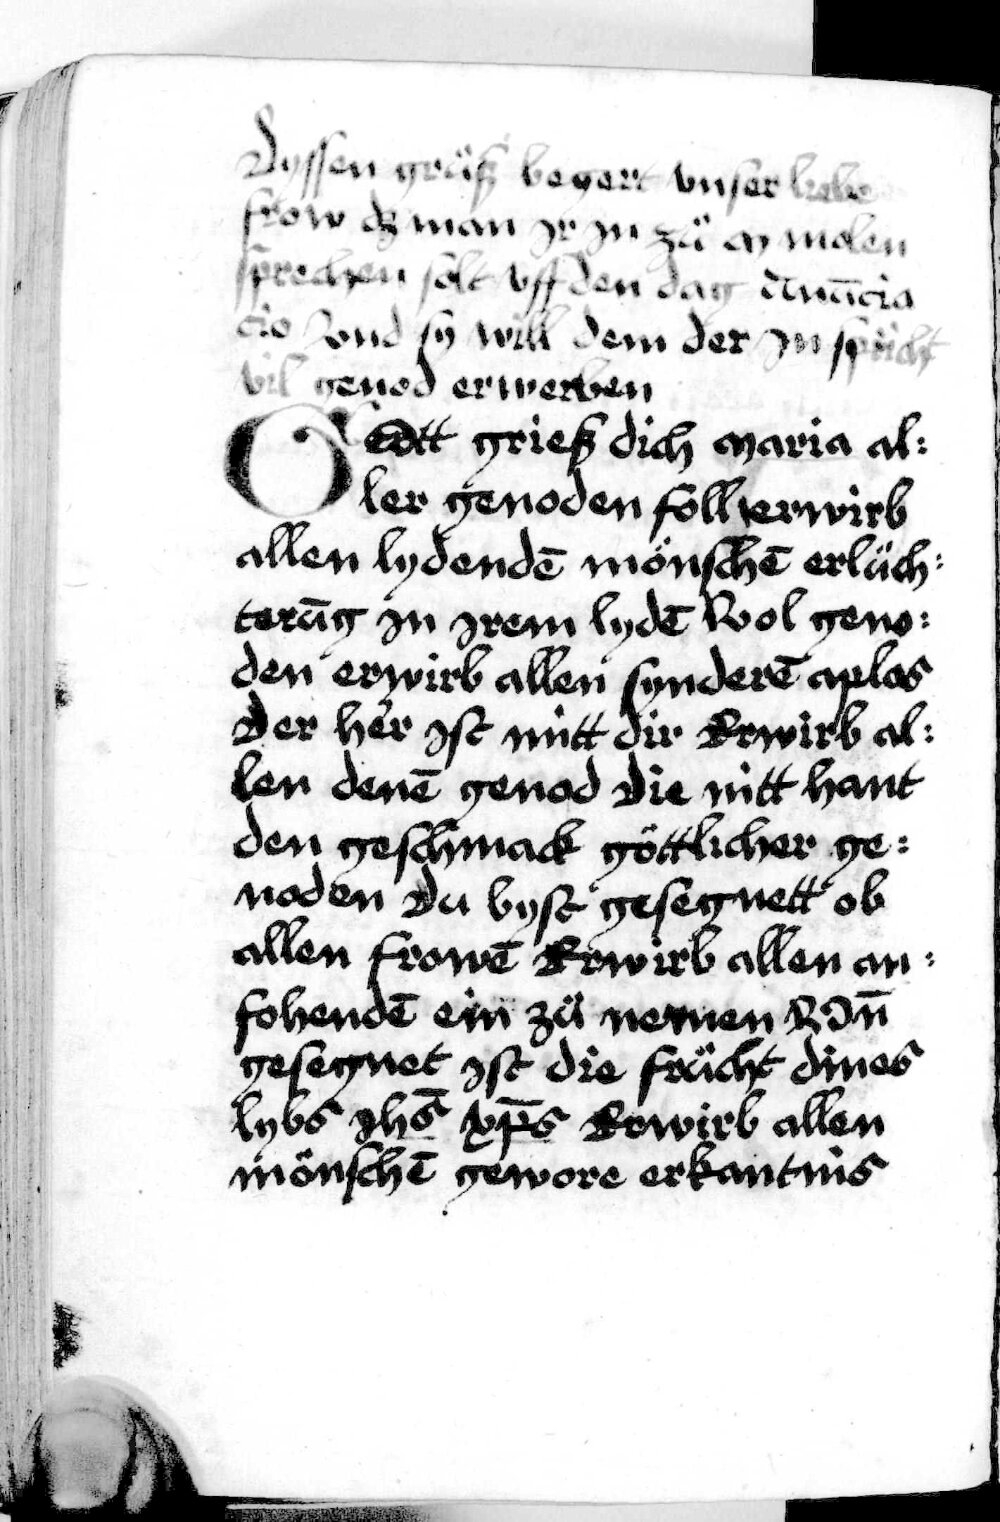 Dyssen grüß begert vnser liebe
frow dz man Ir In zü aj molen
sprechen solt vff den dag Anūcia
cio vnd sy will dem der In spricht
vil genod erwerben
Gott grieß dich maria al:
ler genoden foll erwirb
allen lydendē mönschē erlüch:
terūg In Irem lydē Vol geno:
den erwirb allen synderē aplos
Der her Ist mitt dir Erwirb al:
len denē genod Die nitt hant
den geschmack göttlicher ge:
noden Du byst gesegnett ob
allen frowē Erwirb allen an:
fohendē ein zü nemen Vn̄
gesegnet Ist die frücht dines
lybs Ihs̄ xp̄s Erwirb allen
mönschē gewore erkantnis